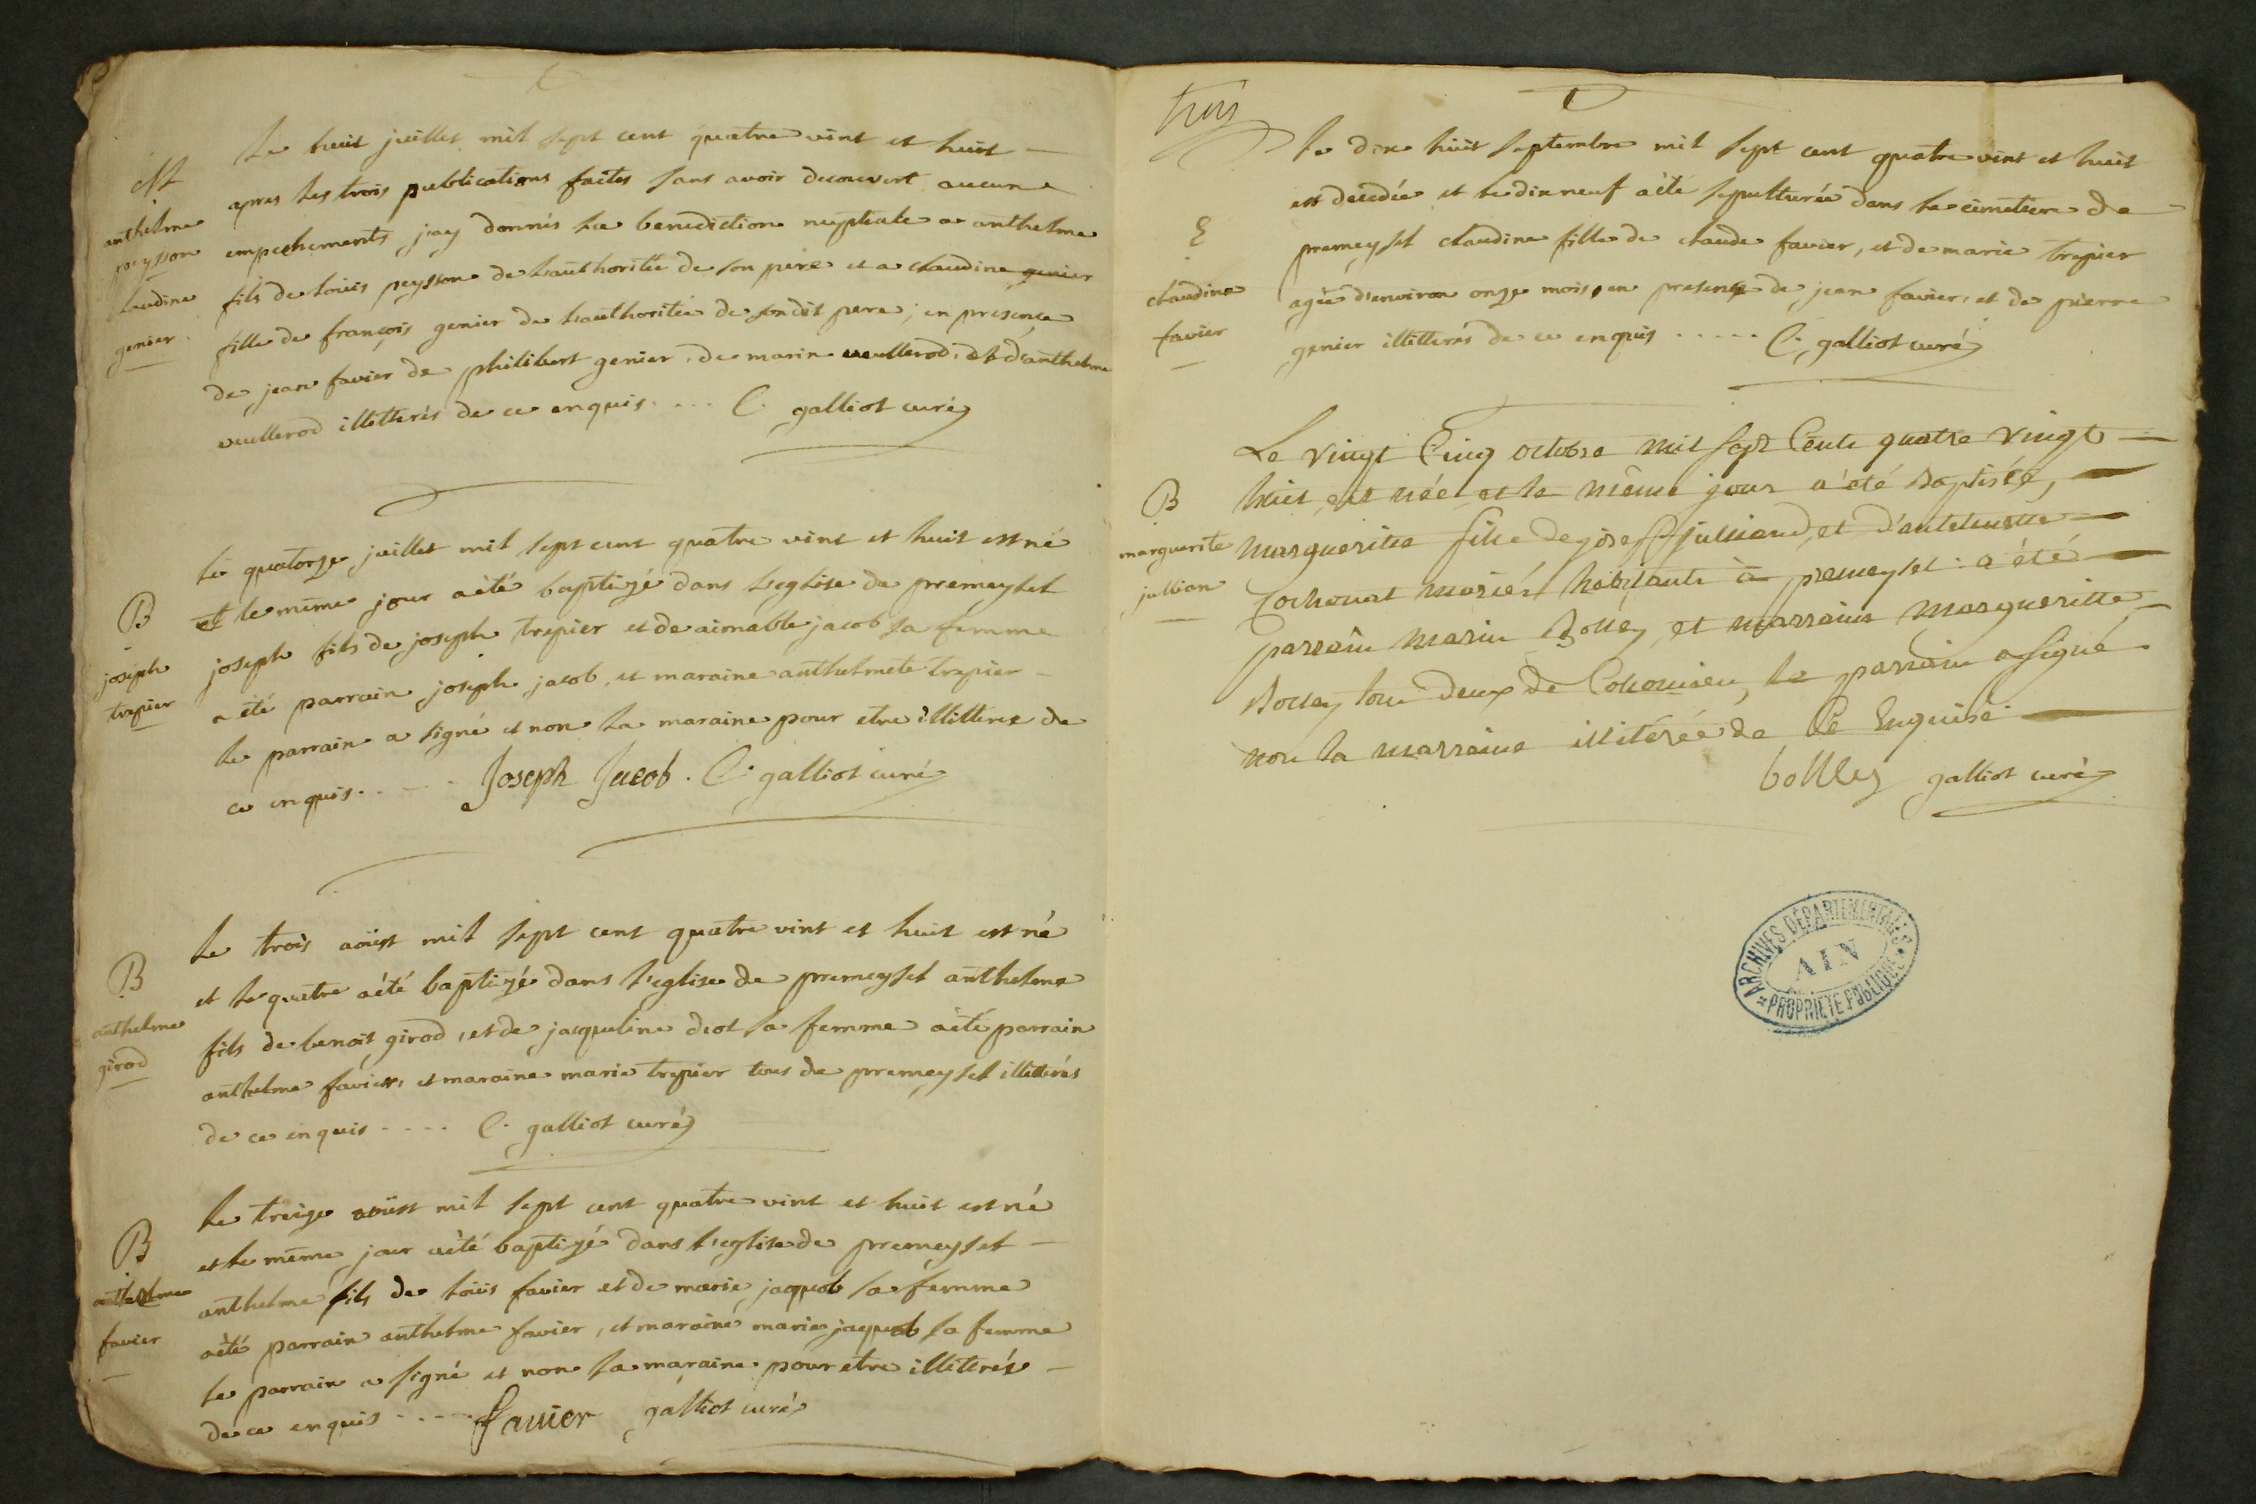 M
anthelme
peysson
claudine
genier
Le huit juillet mil sept cent quatre vint et huit
apres les trois publications faites sans avoir decouvert aucune
empechements j'ay donnés la benediction nuptiale a anthelme
fils de loüis peysson de l'authoritée de son pere et a claudine genier
fille de françois genier de l'authoritée de son dit pere, en presence
de jean favier de philibert genier, de marin veullerod, et d'anthelme
veullerod illitterés de ce enquis .... C. galliot curé
B
joseph
trepier
Le quatorze juillet mil sept cent quatre vint et huit est né
et le même jour a été baptizé dans l'eglise de premeysel
joseph fils de joseph trepier et de aimable jacob sa femme
a été parrain joseph jacob et maraine anthelmete trepier
le parrain a signé et non la maraine pour etre illitteree de
ce enquis .... Joseph Jacob. C. galliot curé
B
anthelme
girod
Le trois aoüst mil sept cent quatre vint et huit est né
et le quatre a été baptizé dans l'eglise de premeysel anthelme
fils de benoit girod, et de jacqueline diot sa femme a été parrain
anthelme favier, et maraine marie trepier tous de premeysel illitterés
de ce enquis .... C. galliot curé
B
anthelme
favier
Le treize aoüst mil sept cent quatre vint et huit est né
et le même jour a été baptizé dans l'eglise de premeysel
anthelme fils de loüis favier et de marie jaquob sa femme
a été parrain anthelme favier, et maraine marie jaquob sa femme
le parrain a signé et non la maraine pour etre illiterée
de ce enquis .... favier galliot curé
trois
E
claudine
favier
Le dix huit septembre mil sept cent quatre vint et huit
est decedée et le dixneuf a été sepulturée dans le cimetiere de
premeysel claudine fille de claude favier, et de marie trepier
agée d'environ onze mois, en presence de jean favier, et de pierre
genier illitterés de ce enquis ..... C. galliot curé
B
marguerite
jullian
Le vingt Cinq octobre mil sept Cent quatre vingt
huit, est née et le même jour a été Baptisée,
Margueritte fille de josef julliand, et d'antelmette
Cochonat mariés habitants à premeysel : a été
parrain Marin Bolley, et marraine Margueritte
Bolley tous deux de Colomieu, le parrain a signé
non la marraine illiterée de Ce Enquise
bolley galliot curé
ARCHIVES DÉPARTEMENTALES
AIN
PROPRIÉTÉ PUBLIQUE